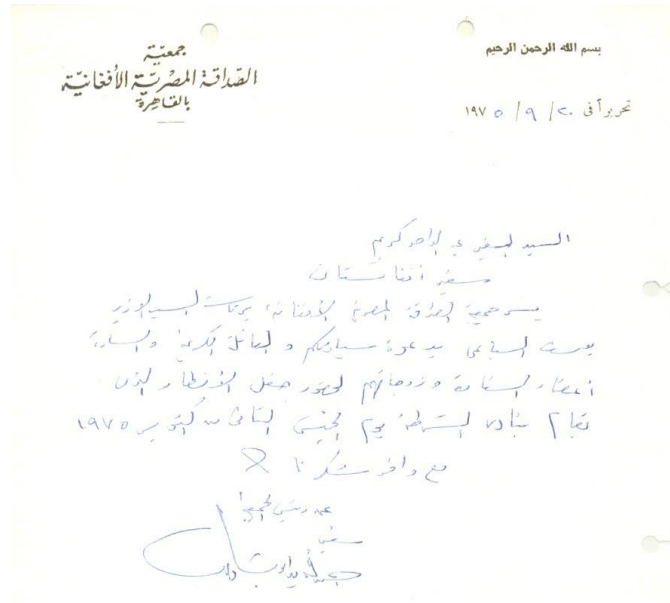 بسم الله الرحمن الرحيم
جمعية
الصداقة المصرية الأفغانية
بالقاهرة
تحريرا في ٢٠ / ٩ / ١٩٧٥
السيد السفير عبد الواحد كريم
سفير افغانستان
يسر جمعية الصداقة المصرية الأفغانية برئاسة السيد الوزير
يوسف السباعي بدعوة سيادتكم والعائلة الكريمة والسادة
أعضاء السفارة وزوجاتهم لحضور حفل الأفطار الذى
يقام بنادى الشرطة يوم الخميس الثانى من أكتوبر ١٩٧٥
مع وافر شكرنا
عن رئيس الجمعية
سفير